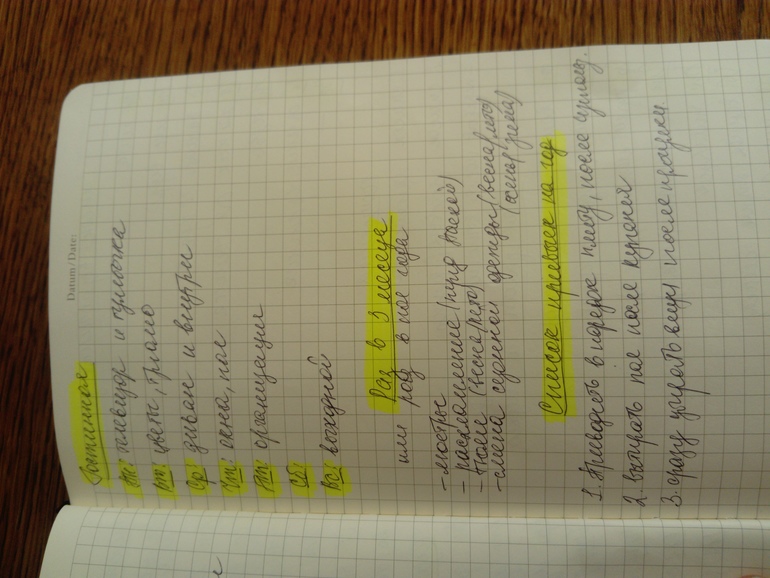 Datum/Date:
Гостинная
Пн: телевизор и тумбочка
Вт: цветы, трюмо
Ср: диван и внутри
Чт: окна, пол
Пт: организация
Сб:
Вс: выходной
Раз в 3 месяца
или раз в пол года
- люстры
- расхламление (перед пасхой)
- тюли (весна/лето)
- смена сезонной одежды (весна/лето)
(осень/зима)
Список привычек на год
1. приводить в порядок плиту, после
2. вытирать пол после купания
3. сразу убирать вещи после прогулки